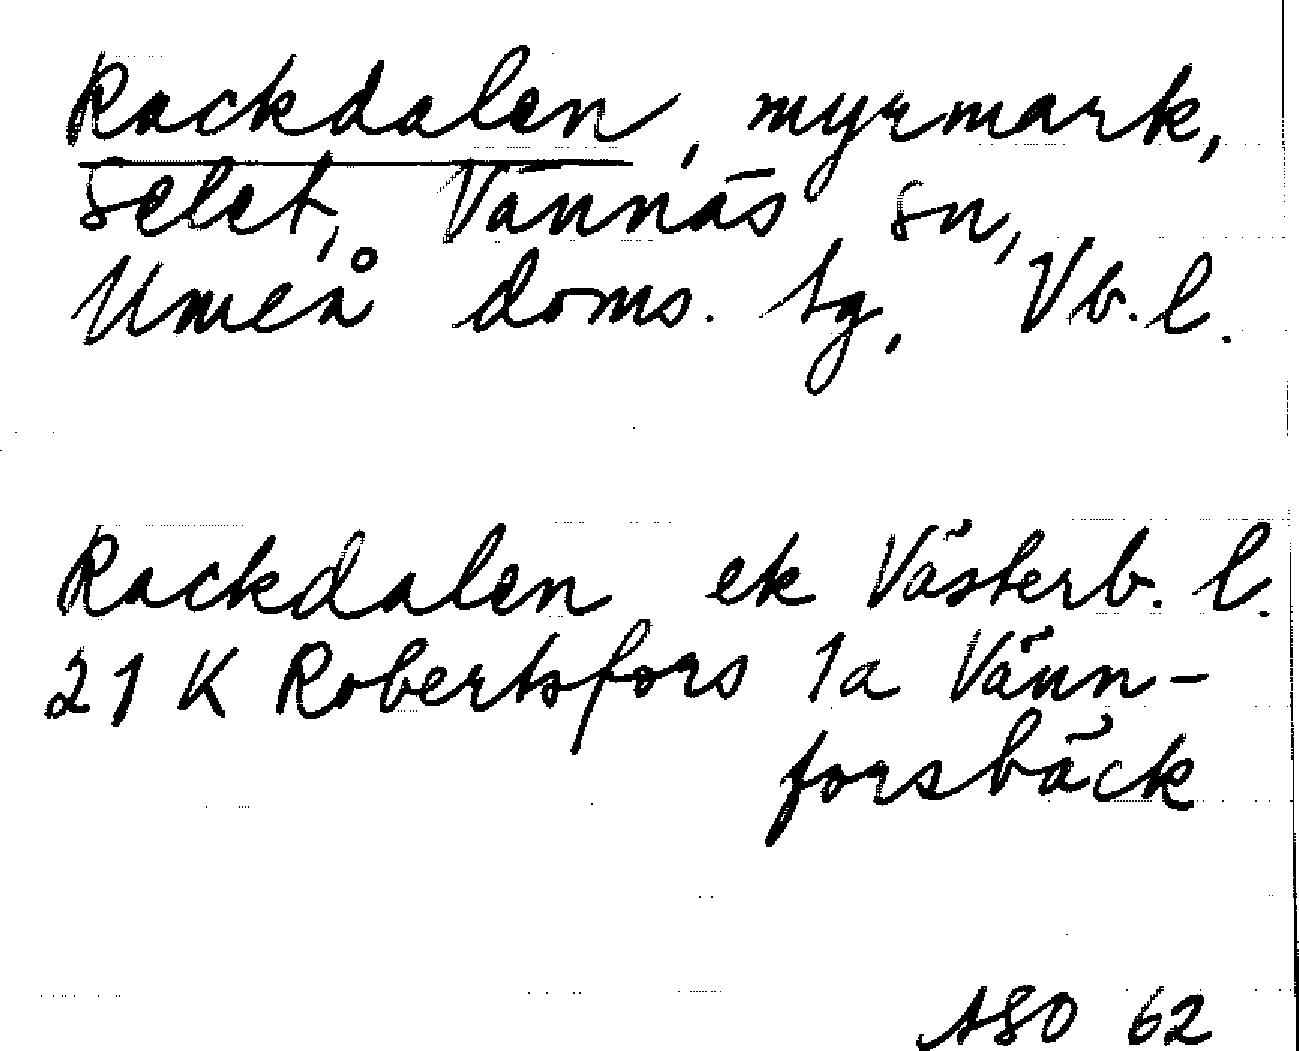 Rackdalen, myrmark,
Selet, Vännäs sn,
Umeå doms. tg, Vb.l.
Rackdalen ek Västerb. l.
21 K Robertsfors 1a Vänn-
forsbäck
ASO 62